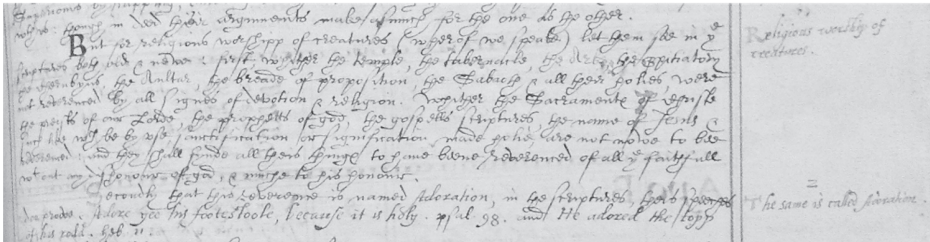 though in deed their arguments make asmuch for the one as the other.
But for religious worshipp of creatures (wherof we speake) let them see in ye
scriptures both old & newe: first, whether the temple, the tabernacle, the Arke, the Propitiatory
the Cherubyns, the Aultar, the breade of proposition, the Saboth & all their holies were
not reverenced by all signes of devotion & religion. Whether the Sacraments of Christe
the preists of our Lorde, the prophetts of god, the gospells scriptures the name of Jesus &
such like wch be by use, sanctification or signification, made holie are not nowe to bee
reverenced: and they shall finde all theis things to have beene reverenced of all ye faithfull
wtout any dishonour of god, & muche to his honour.
Secondly that this Reverence is named Adoration, in the scriptures, theis speeches
doe prove. Adore yee his footestoole, because it is holy. psal. 98. and He adored the topp
of his rodd. heb. 11.
Religious worship of
creatures.
2
The same is called Adoration.